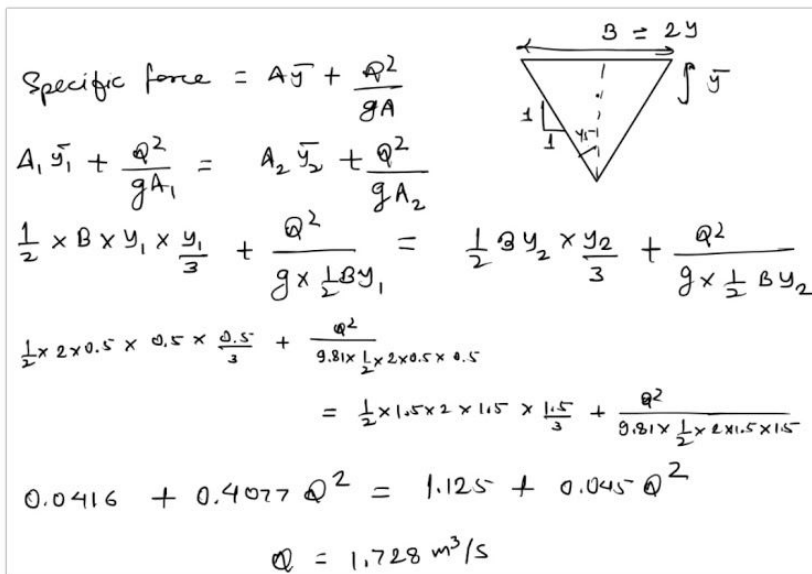 B = 2y
Specific force = Aȳ + Q²/gA
ȳ
1
1
A₁ȳ₁ + Q²/gA₁ = A₂ȳ₂ + Q²/gA₂
1/2 × B × y₁ × y₁/3 + Q²/(g × 1/2 By₁) = 1/2 By₂ × y₂/3 + Q²/(g × 1/2 By₂)
1/2 × 2×0.5 × 0.5 × 0.5/3 + Q²/(9.81× 1/2 × 2×0.5× 0.5)
= 1/2 × 1.5×2 × 1.5 × 1.5/3 + Q²/(9.81× 1/2 × 2×1.5×1.5)
0.0416 + 0.4077 Q² = 1.125 + 0.045 Q²
Q = 1.728 m³/s